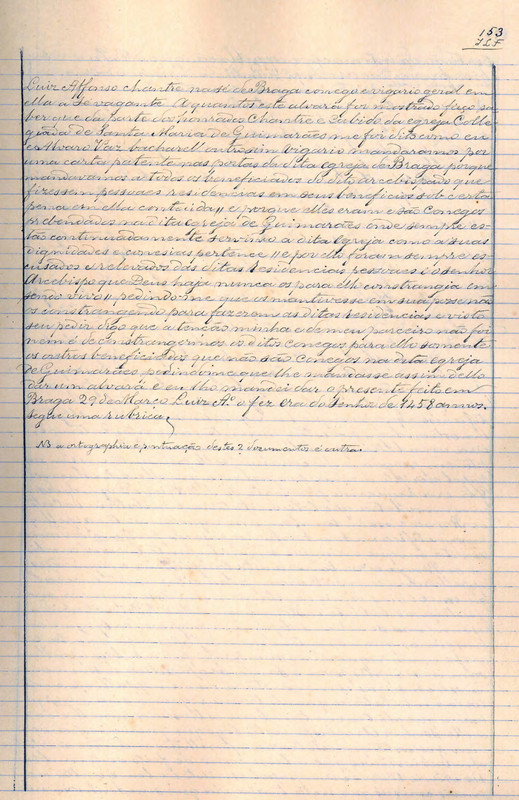 153
J L F
Luiz Affonso chantre na sé de Braga conego e vigario geral em
ella a sé vagante. A quantos este alvará for mostrado faço sa
ber que da parte dos honrados Chantre e Cabido da egreja Colle
giada de Santa Maria de Guimarães me foi dito como eu
e Alvaro Vaz bacharel outrosim vigario mandaramos por
uma carta patente nas portas da dita egreja de Braga porque
mandavamos a todos os beneficiados do dito arcebispado que
fizessem pessoaes residencias em seus beneficios sob certa
pena em ella contheuda,, e porque elles eram e são conegos
prebendados na dita egreja de Guimarães onde sempre es
tão continuadamente servindo a dita egreja como a suas
dignidades e conesias pertence,, e por ello foram sempre es
cusados e relevados das ditas residencias pessoaes e o senhor
Arcebispo que Deus haja nunca os para ello constrangia em
sendo vivo,, pedindo-me que os mantivesse em sua posse não
os constrangendo para fazerem as ditas residencias e visto
seu pedir digo que a tenção minha e de meu parceiro não foi
nem é de constrangermos os ditos conegos para ello somente
os outros beneficiados que não são conegos na dita egreja
de Guimarães pedindo-me que lhe mandasse assim dello
dar um alvará e eu lho mandei dar o presente feito em
Braga 29 de Março Luiz Aº. o fez era do Senhor de 1458 annos.
segue uma rubrica.
NB a ortographia e pontuação destes 2 documentos é outra.